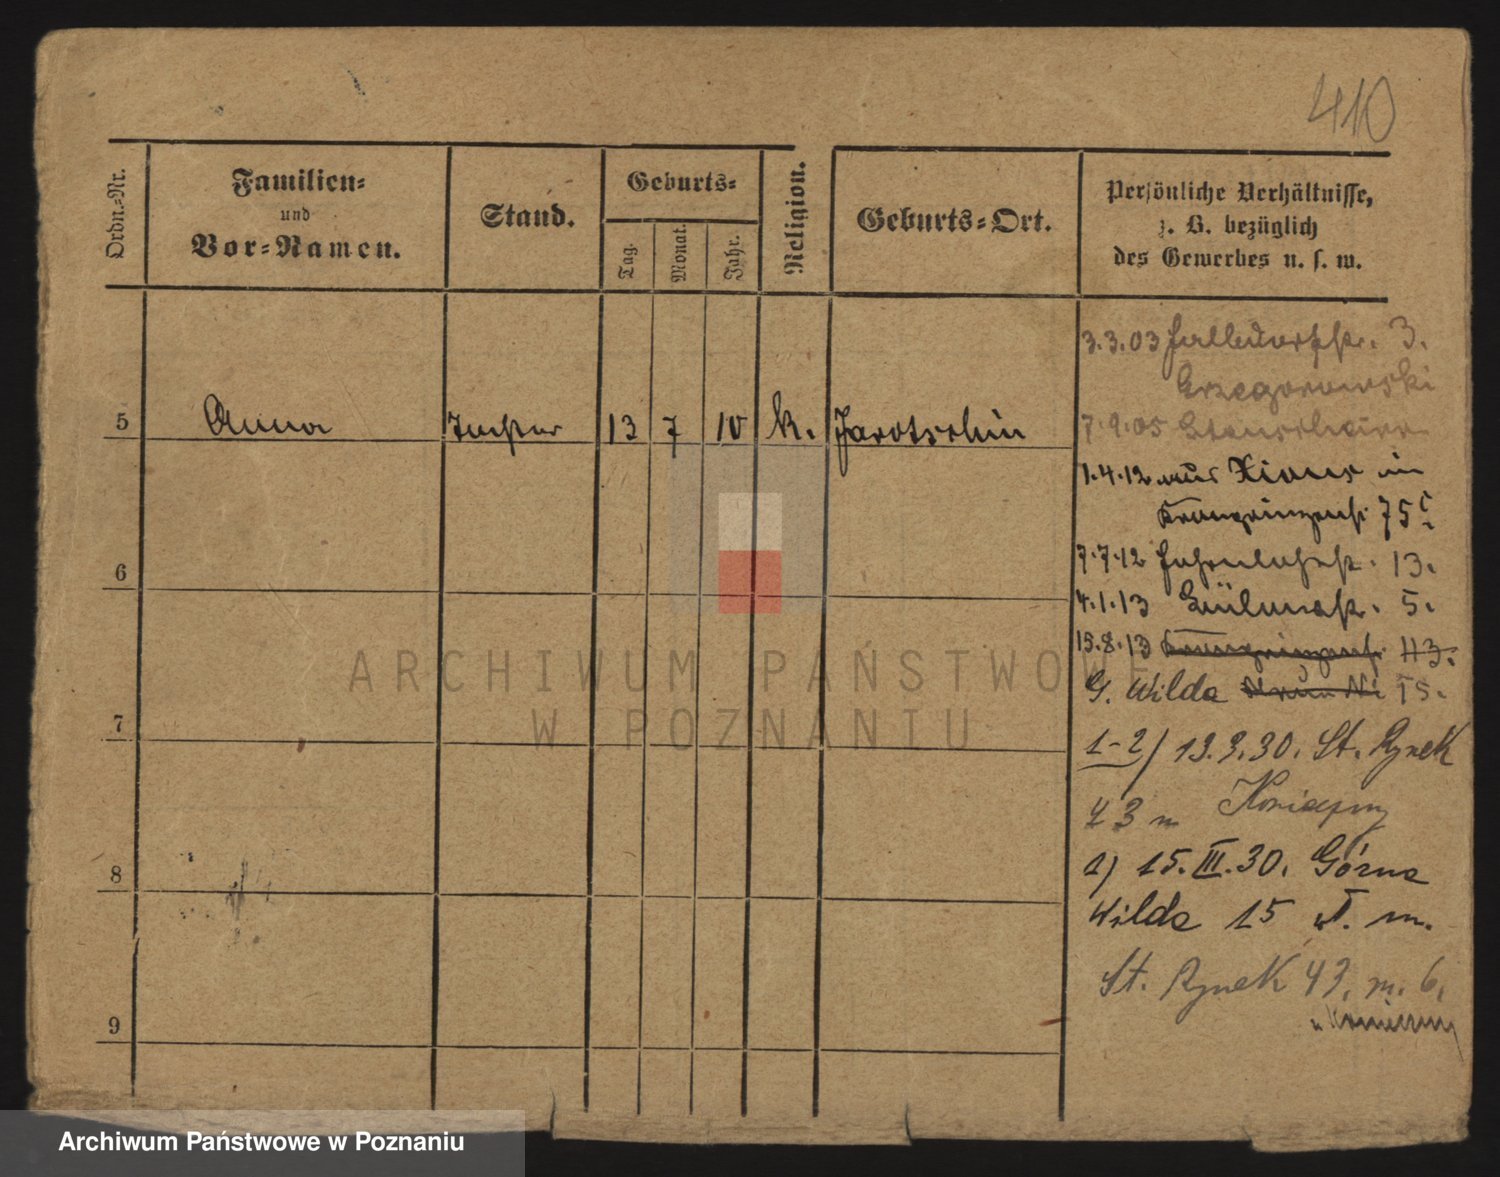 410
Ordn.-Nr.
Familien-
und
Vor-Namen.
Stand.
Geburts-
Tag.
Monat.
Jahr.
Religion.
Geburts-Ort.
Persönliche Verhältnisse,
z. B. bezüglich
des Gewerbes u. s. w.
5 Anna Tochter 13 7 10 k. Jarotschin
6
7
8
9
3.3.03 3.
Grzegorowski
7.9.05
1.4.12 aus Xions in
Kronprinzenst 75
7.7.12 13.
4.1.13 5.
15.8.13 Kronprinzenst. 113.
G. Wilda 15.
1-2) 13.3.30. St. Rynek
43 u
1) 15.III.30. Górna
Wilda 15 m.
St. Rynek 43. m. 6.
ARCHIWUM PAŃSTWOWE
W POZNANIU
Archiwum Państwowe w Poznaniu